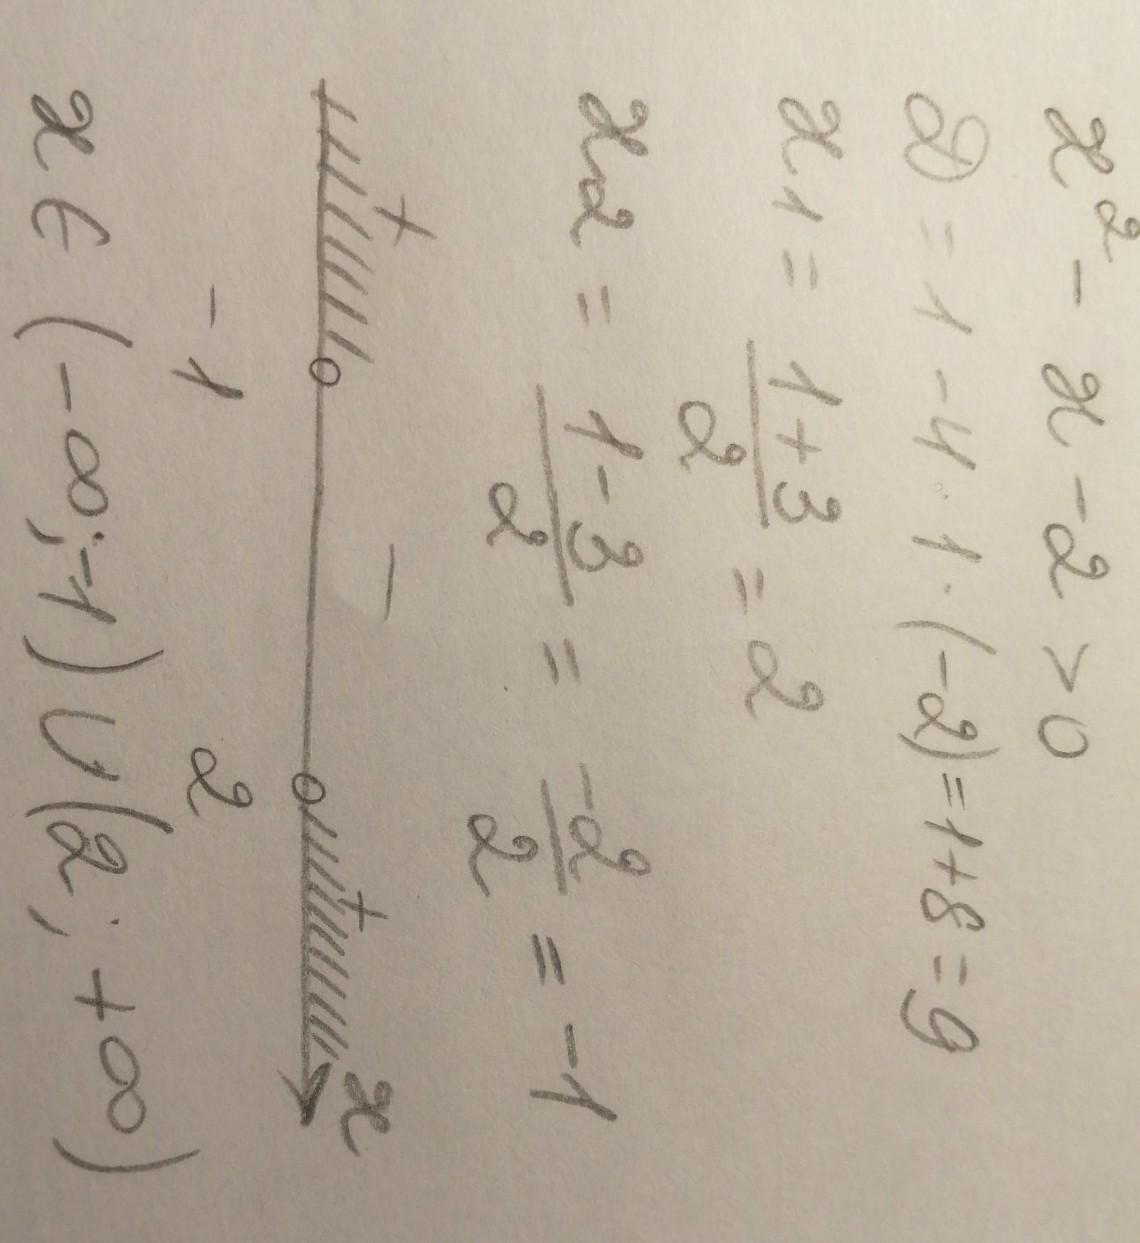 x² - x - 2 > 0
D = 1 - 4 · 1 · (-2) = 1 + 8 = 9
x1 = (1+3)/2 = 2
x2 = (1-3)/2 = -2/2 = -1
+ - + x
-1 2
x ∈ (-∞; -1) ∪ (2; +∞)